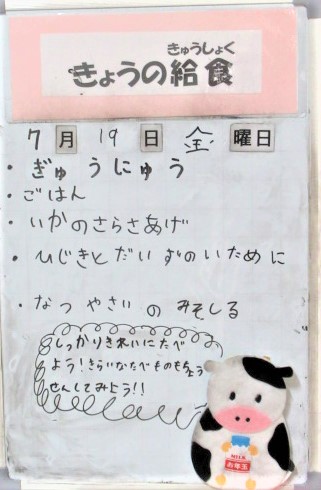 きゅうしょく
きょうの給食
7月19日金曜日
・ぎゅうにゅう
・ごはん
・いかのさらさあげ
・ひじきとだいずのいために
・なつやさいのみそしる
しっかりきれいにたべ
よう!きらいなたべものもちょう
せんしてみよう!!
MILK
お年玉